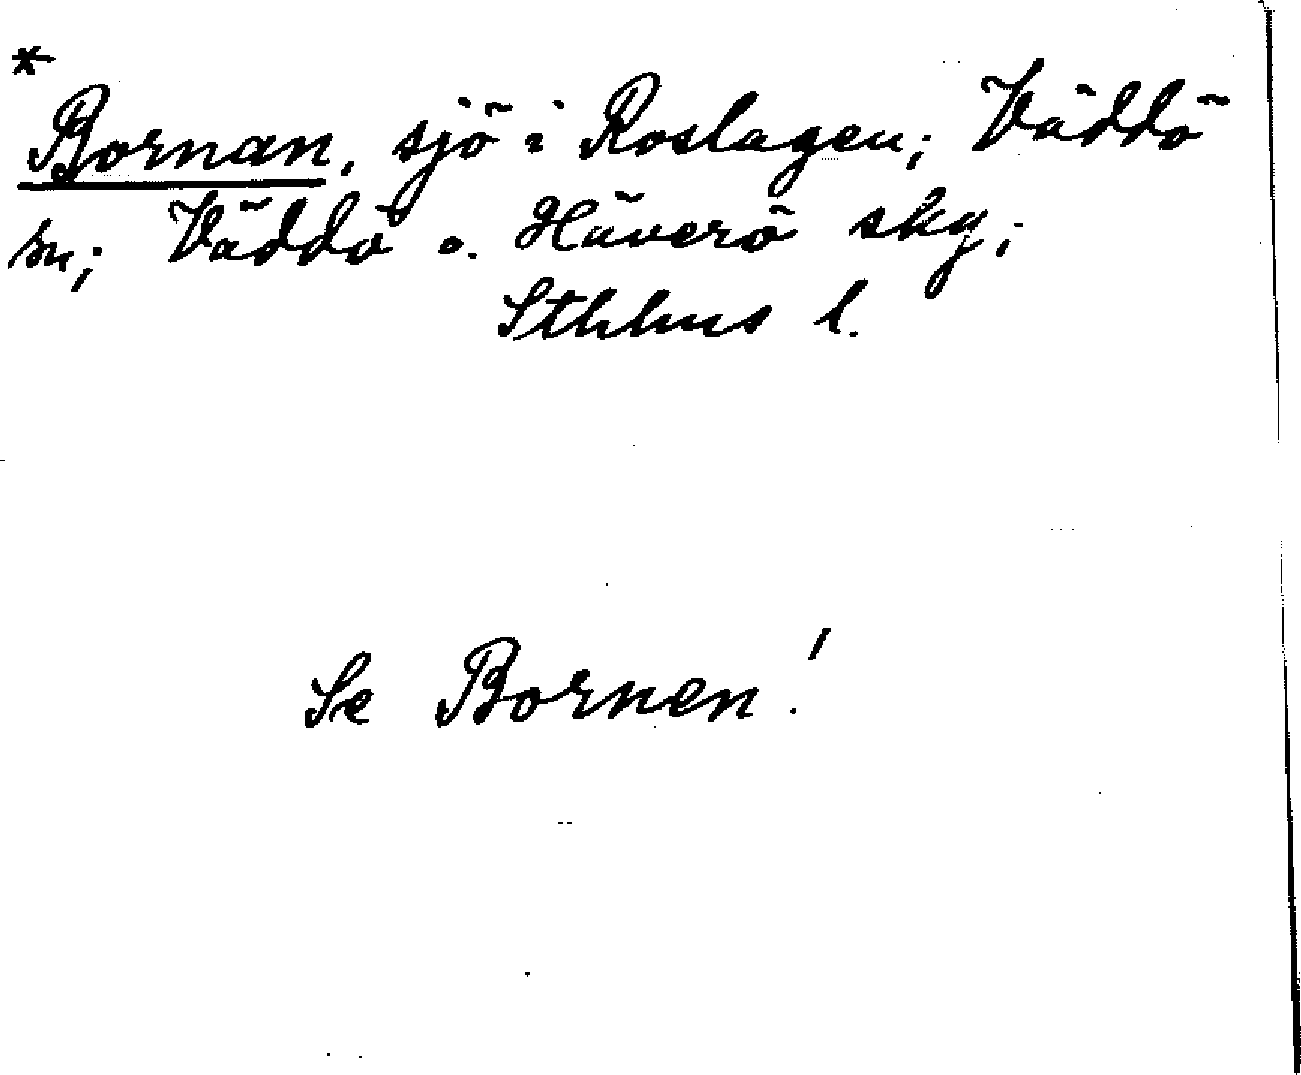 *
Bornan, sjö i Roslagen; Väddö
sn; Väddö o. Häverö skg;
Sthlms l.
Se Bornen!